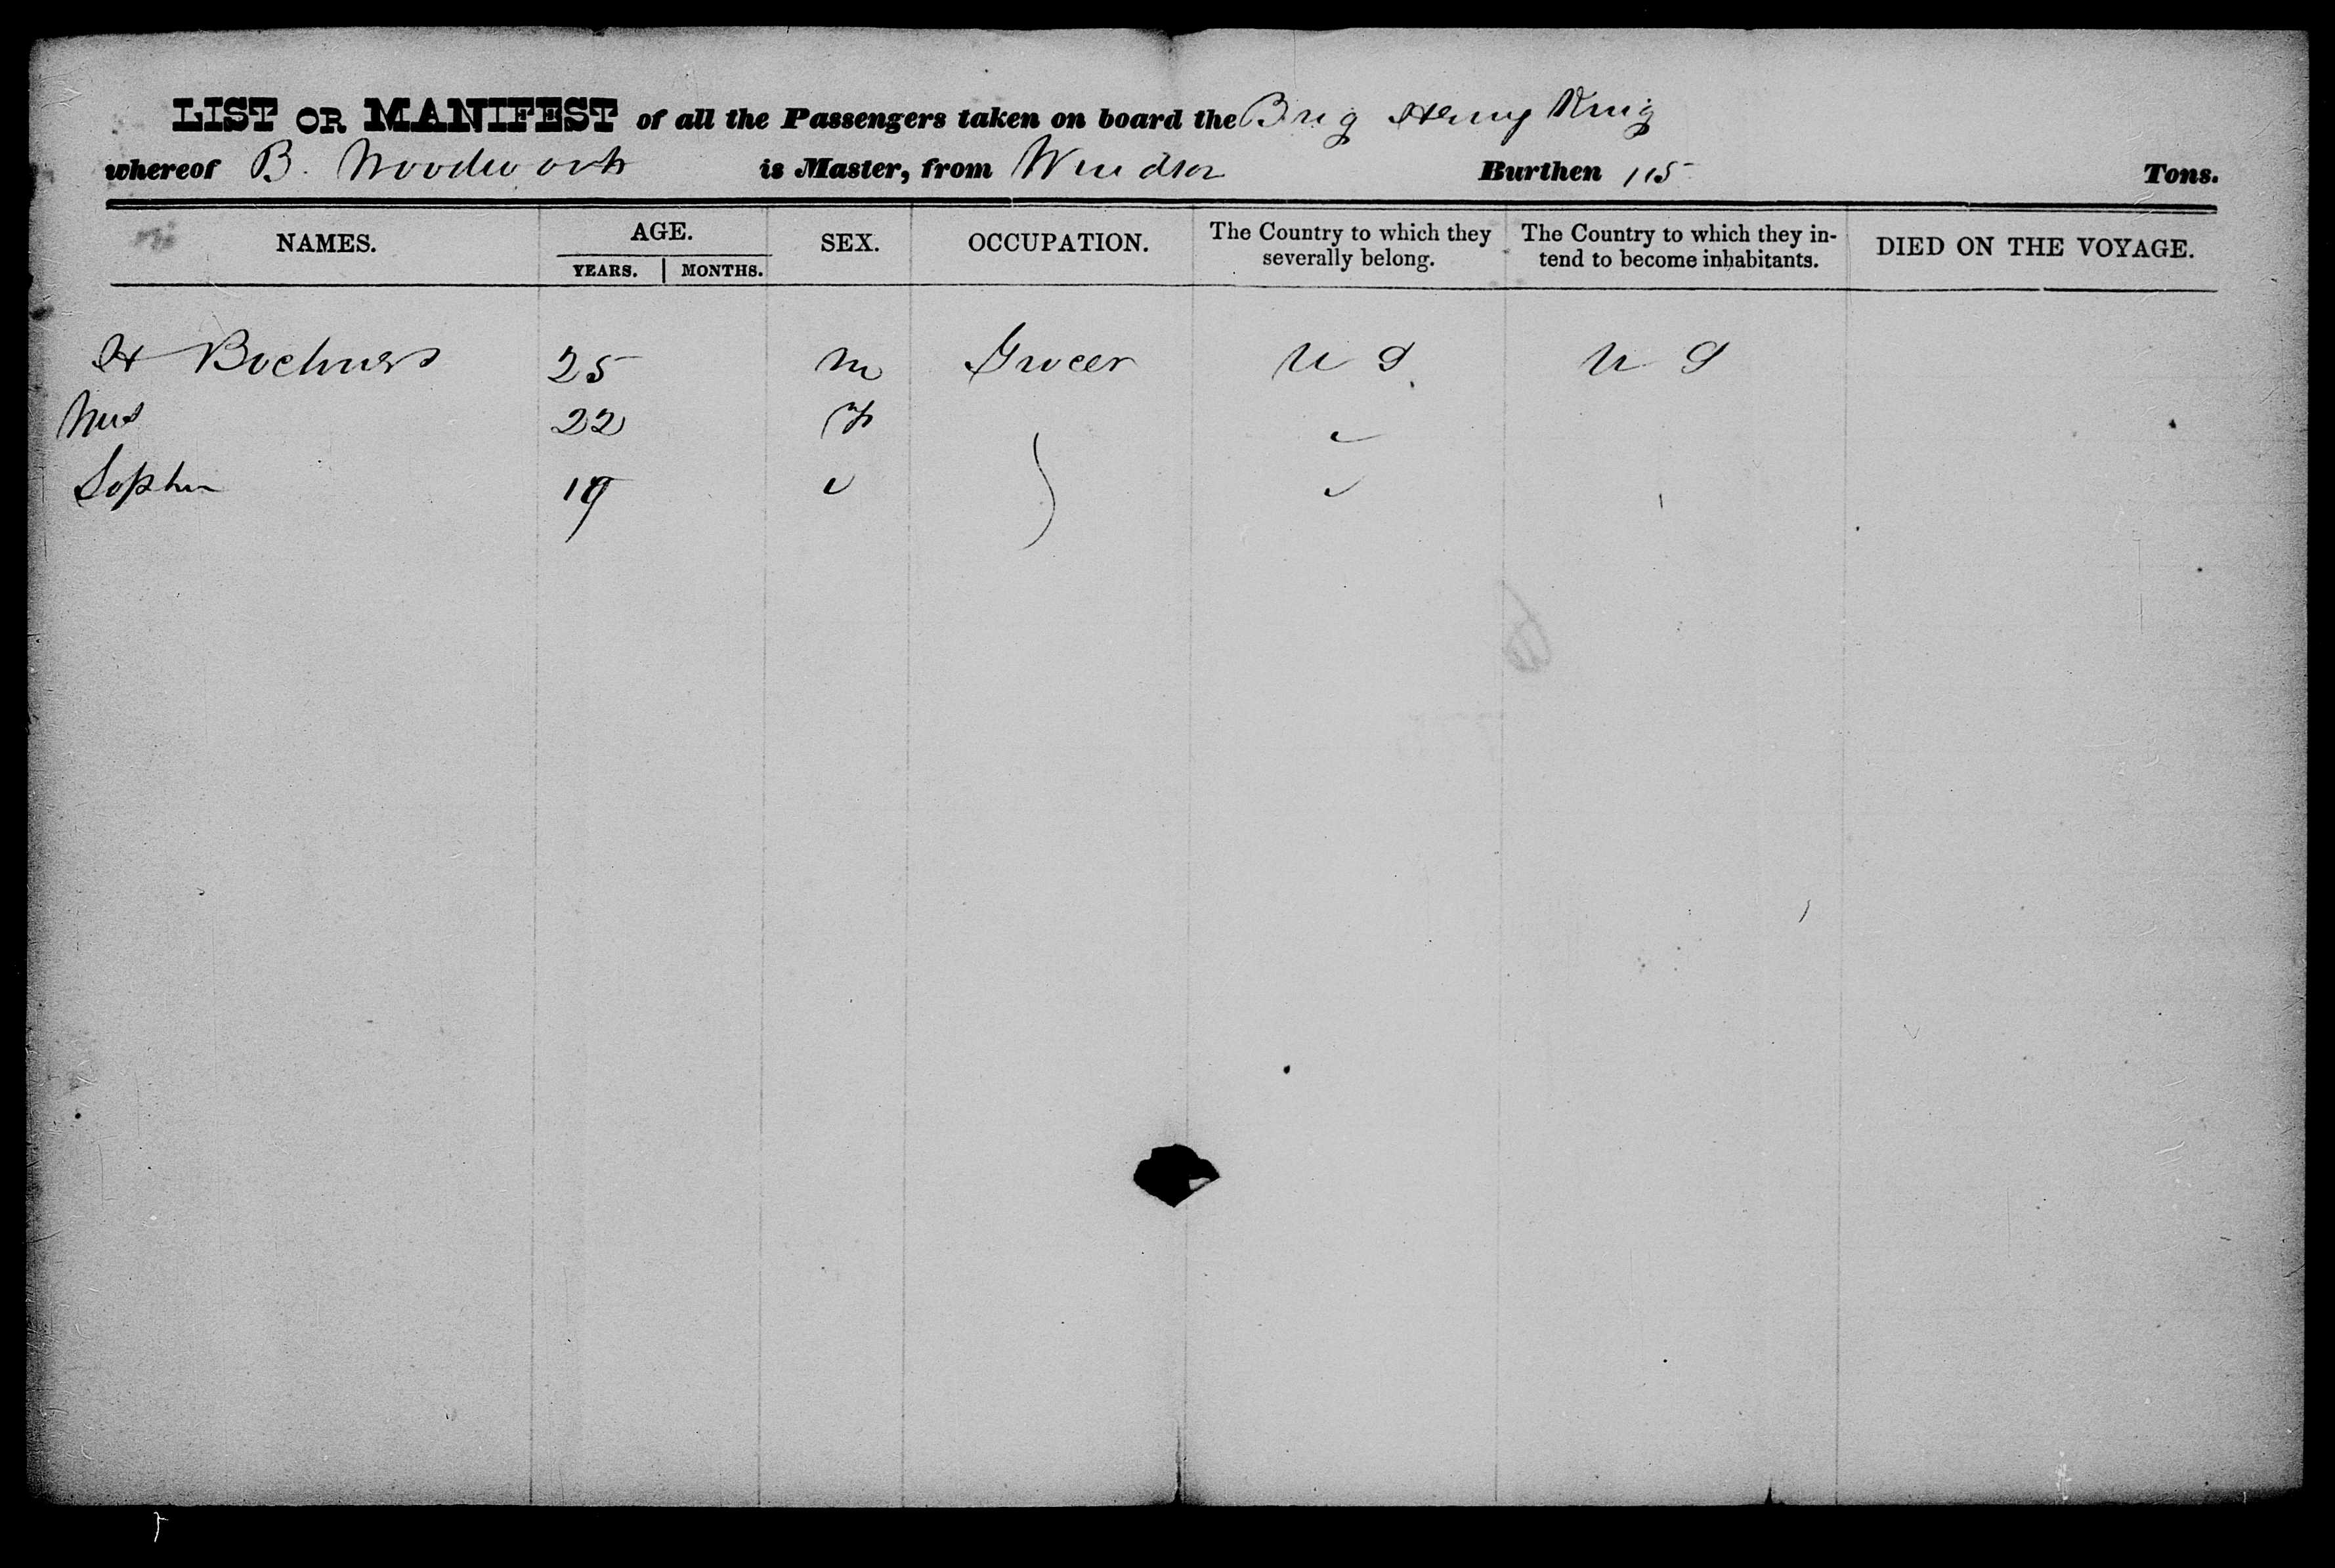 LIST OR MANIFEST of all the Passengers taken on board the Brig Henry King
whereof B. Woodworth is Master, from Windsor Burthen 115 Tons.
NAMES. AGE. SEX. OCCUPATION. The Country to which they severally belong. The Country to which they intend to become inhabitants. DIED ON THE VOYAGE.
YEARS. MONTHS.
H 25 m Grocer U S U S
Mrs 22 F
Sophia 19